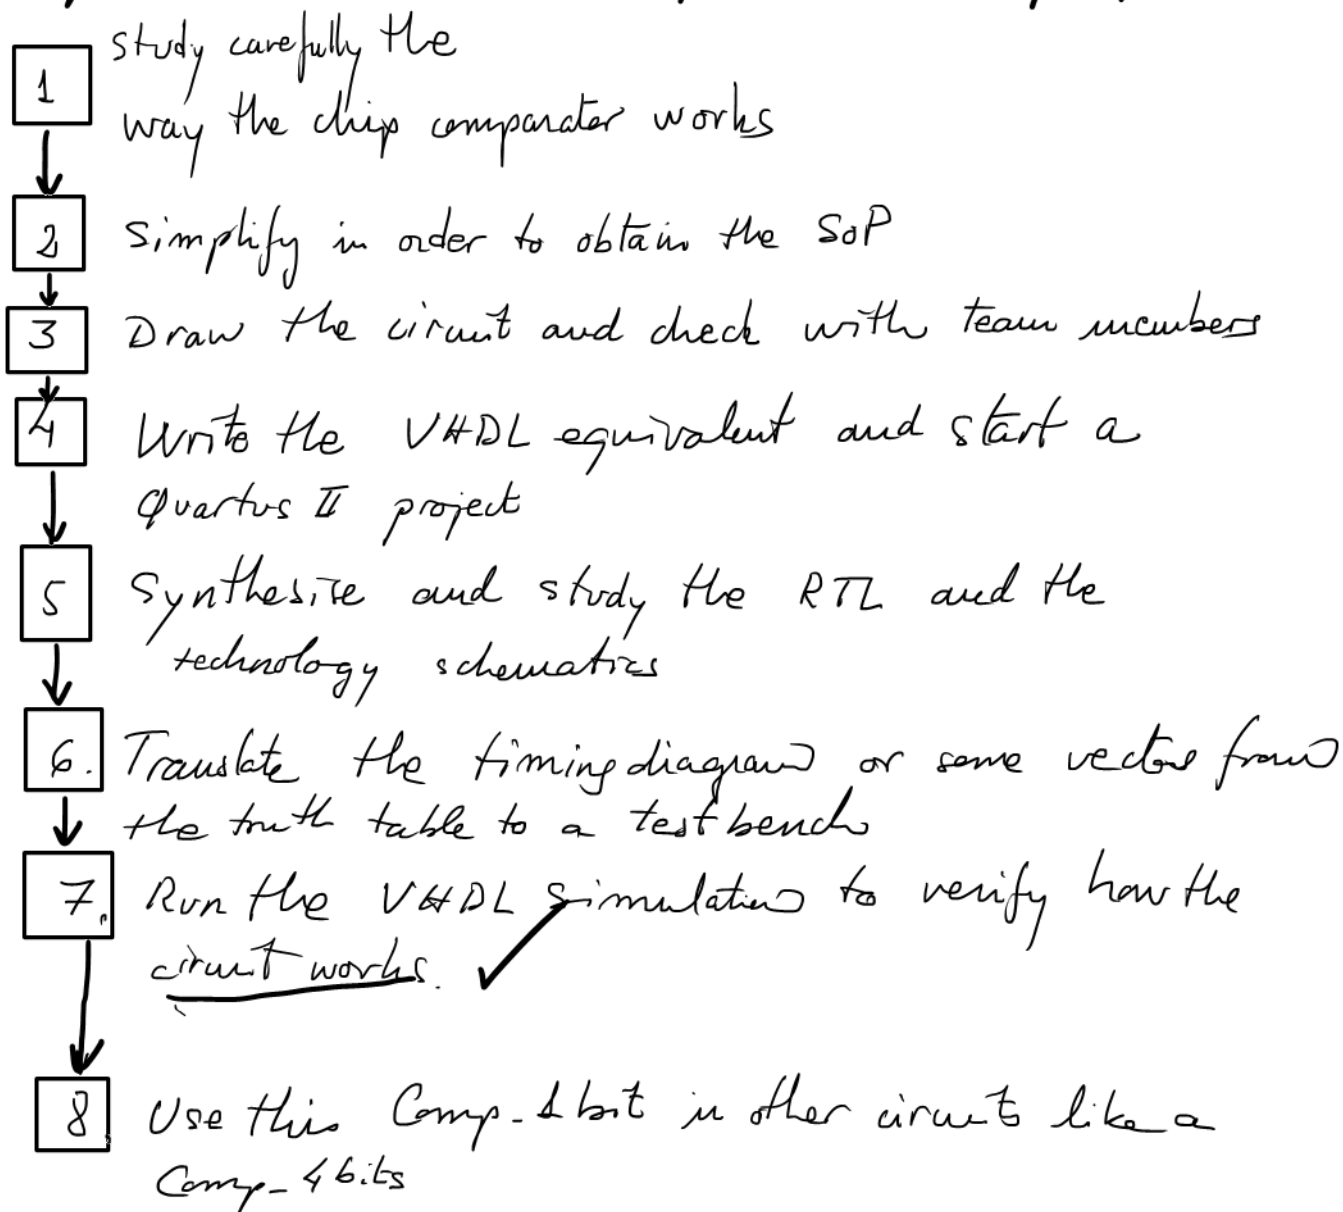 1 study carefully the
way the chip comparator works
2 Simplify in order to obtain the SoP
3 Draw the circuit and check with team members
4 Write the VHDL equivalent and start a
Quartus II project
5 Synthesise and study the RTL and the
technology schematics
6. Translate the timing diagram or some vectors from
the truth table to a test bench
7. Run the VHDL simulation to verify how the
circuit works.
8 Use this Comp_1bit in other circuits like a
Comp_4bits